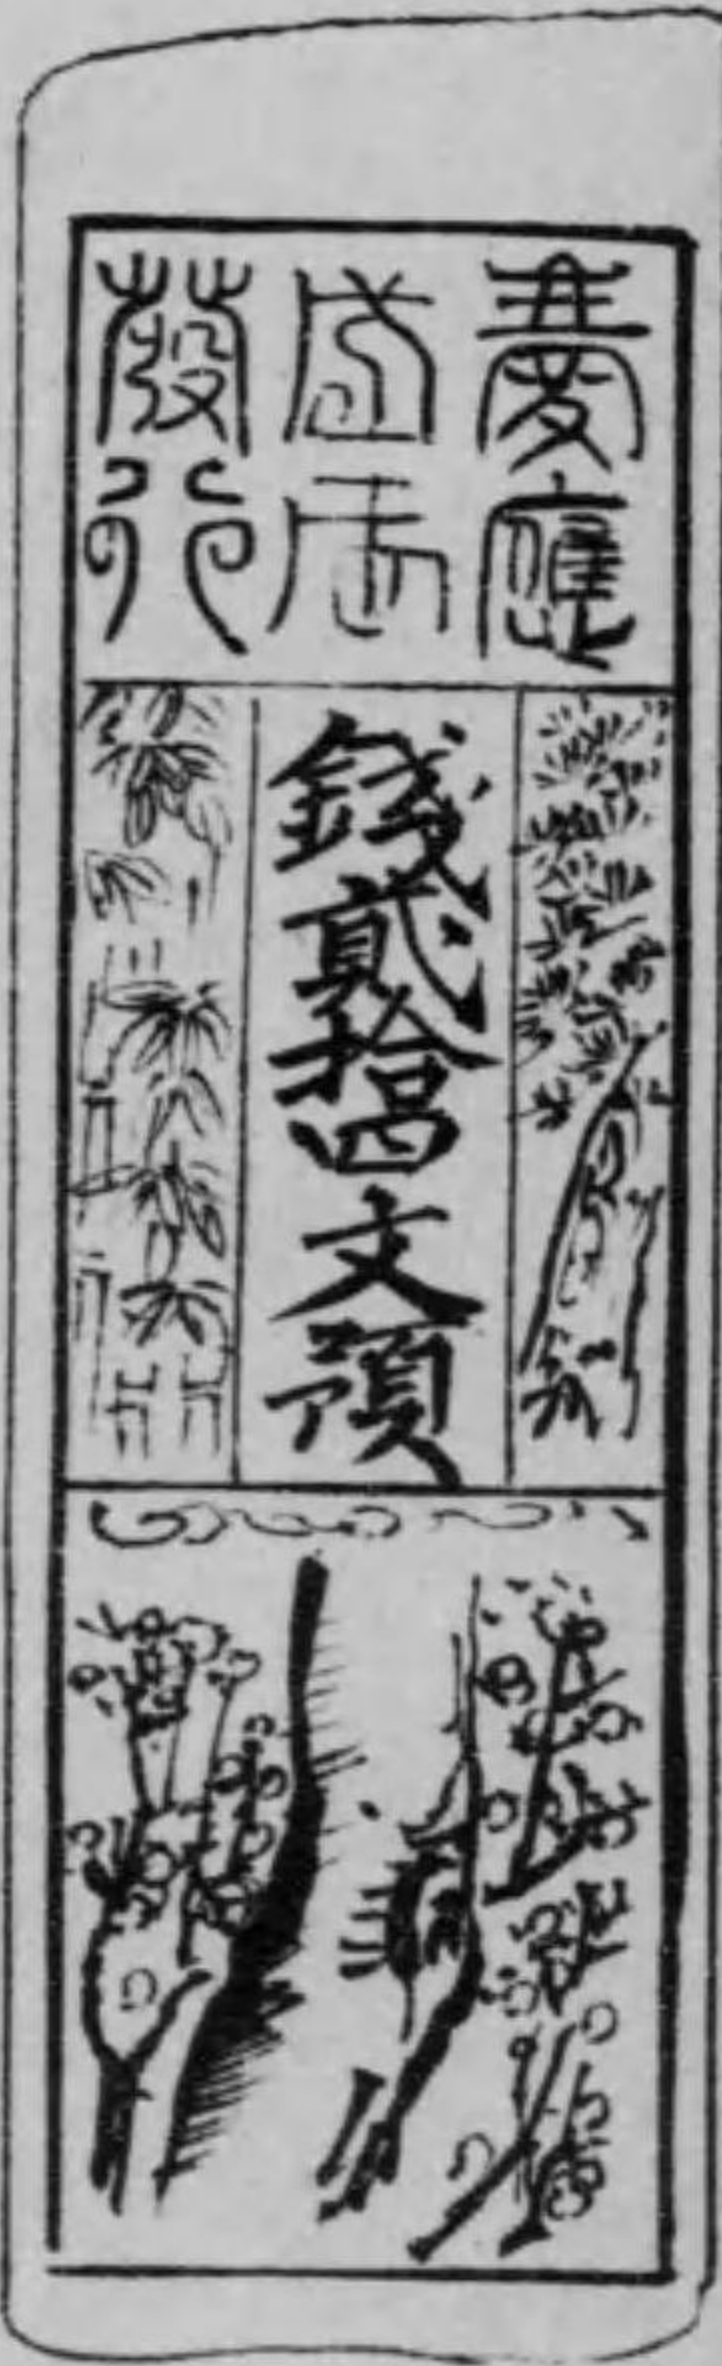 慶應
戊辰
發行
錢貳拾四文預